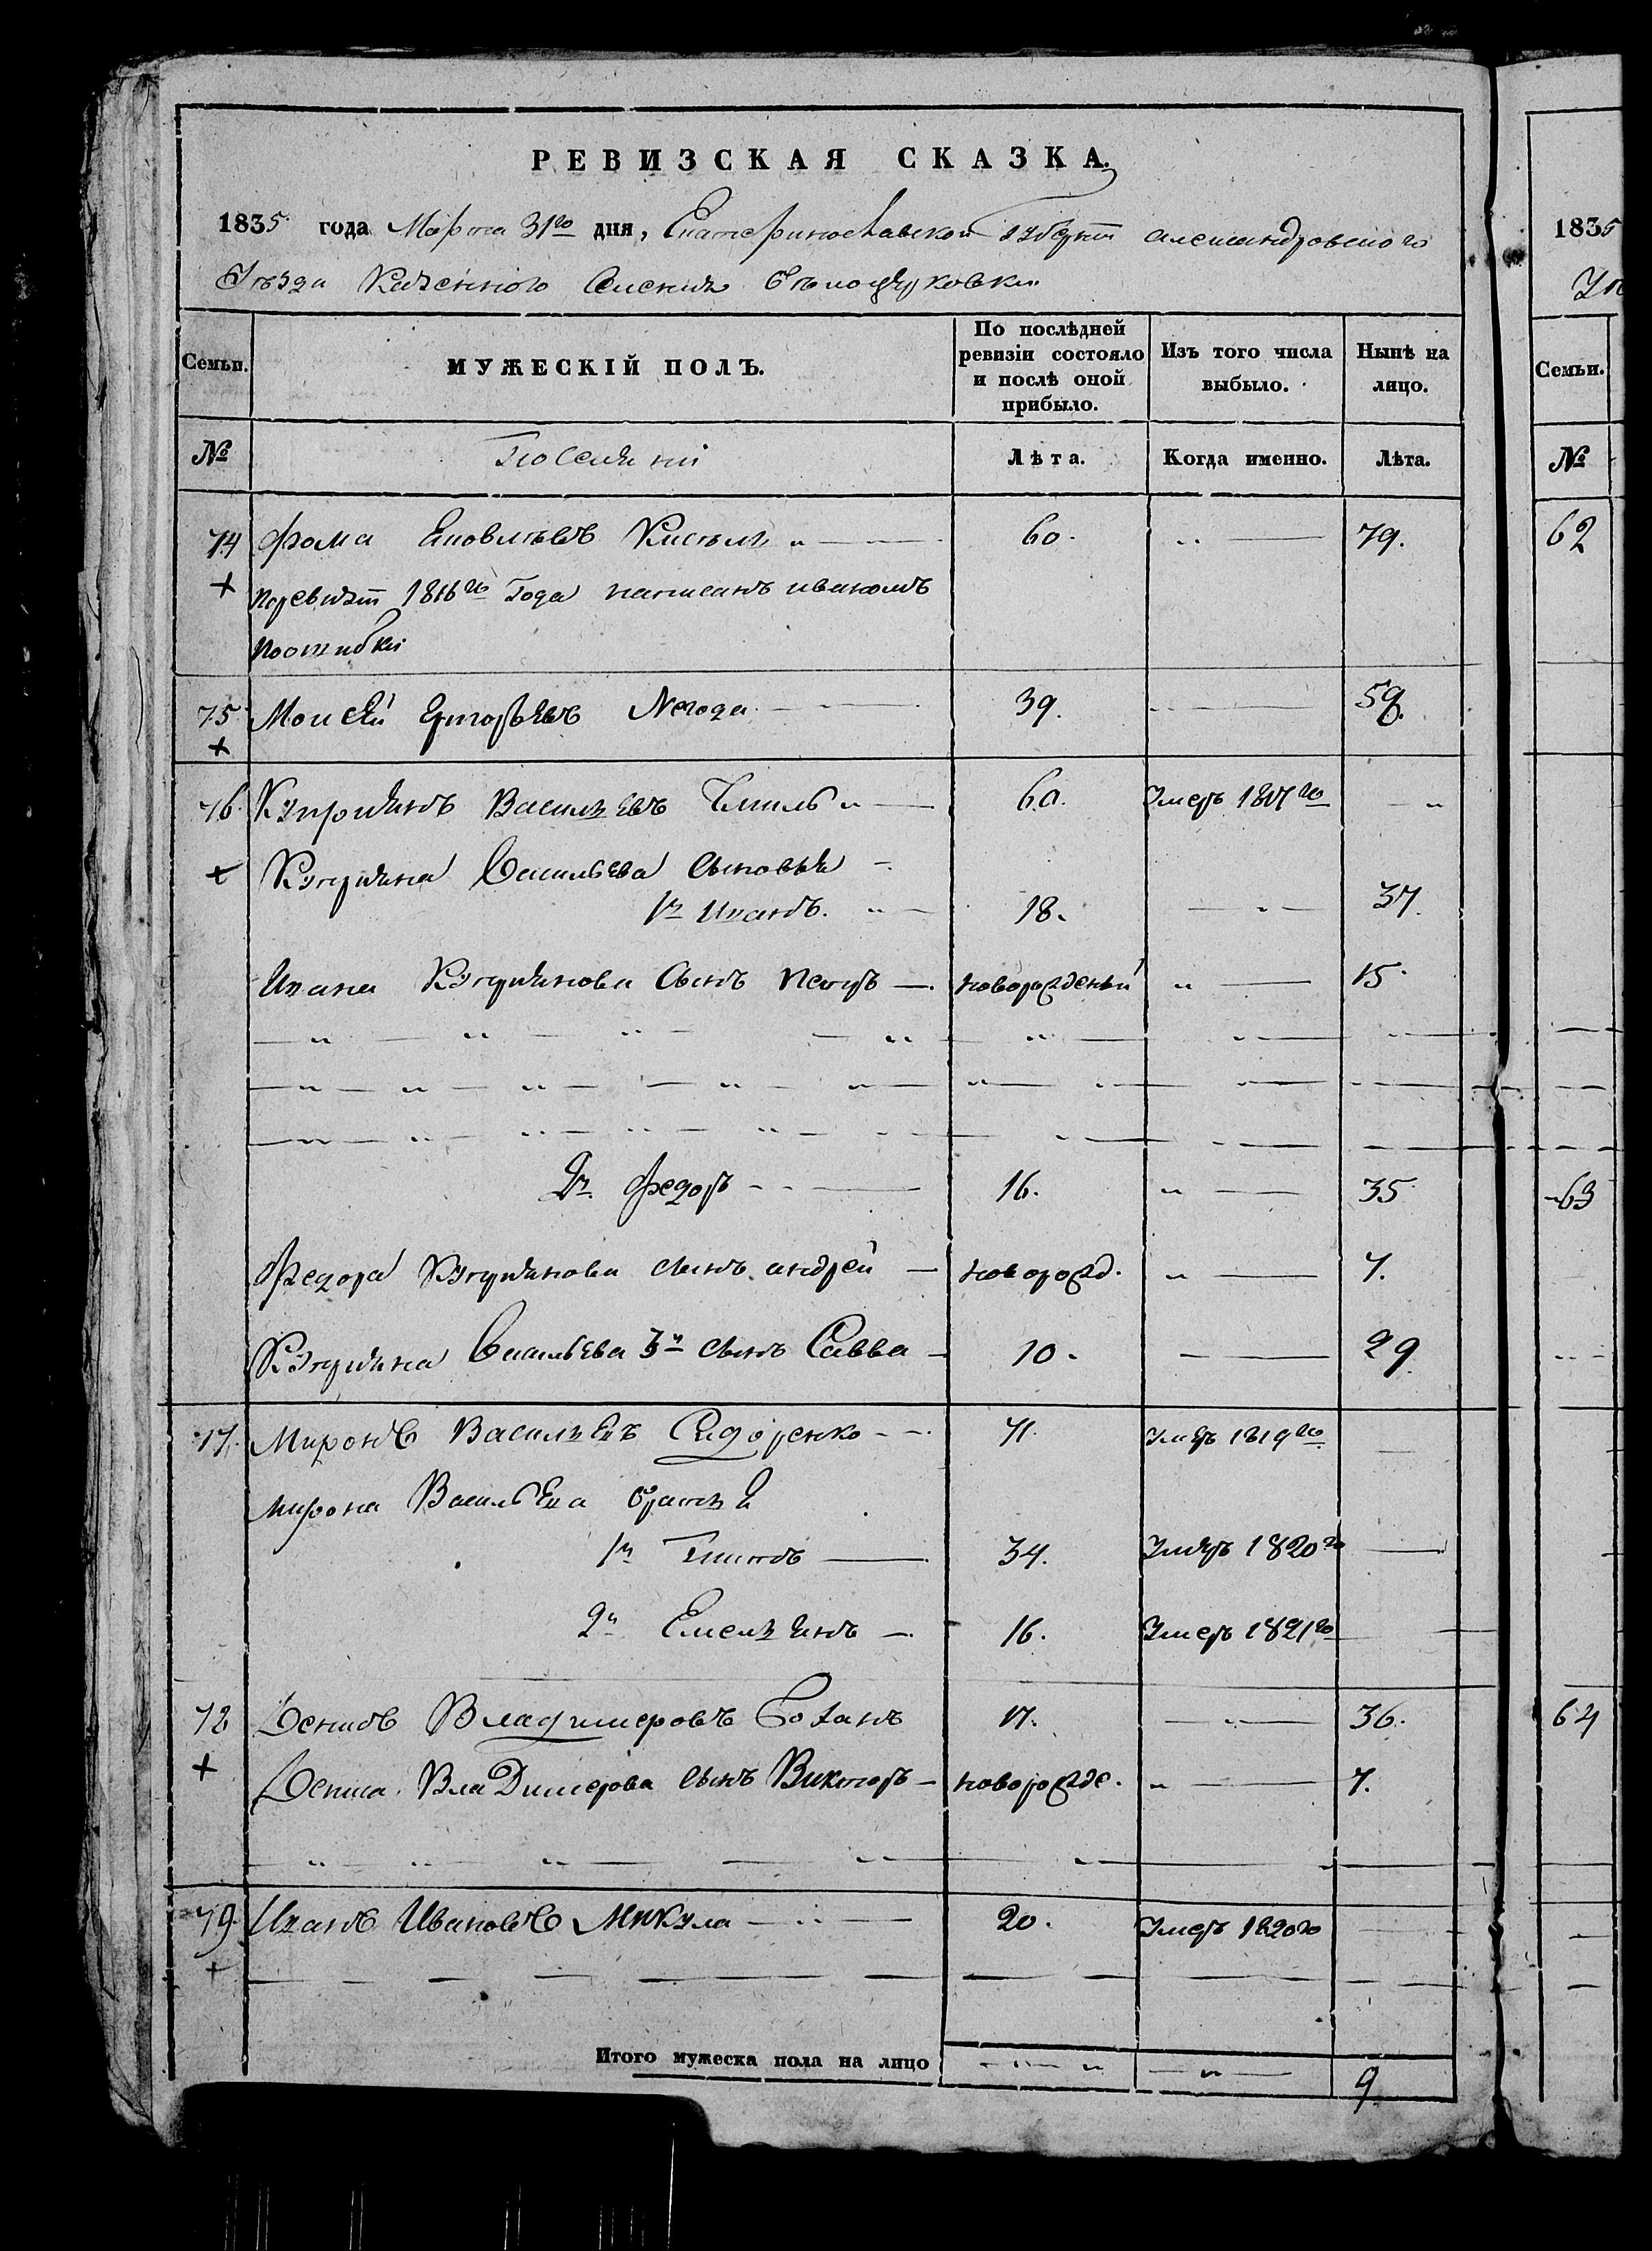 РЕВИЗСКАЯ СКАЗКА.
1835 года Марта 31го дня, Екатеринославской Губерни александровского
Уезда Казенного Селения
1835
Семьи.
МУЖЕСКІЙ ПОЛЪ.
По послѣдней ревизіи состояло и послѣ оной прибыло.
Изъ того числа выбыло.
Нынѣ на лицо.
Семьи.
№
Поселяни
Лѣта.
Когда именно.
Лѣта.
№
74 Фома Яковлевъ 60. 79. 62
+ 1816го Года написанъ иваномъ
поошибки
75 Моисей Григорьевъ Негода 39. 59.
+
76 Куприянъ Васильевъ 60. Умеръ 1817го
+ Куприяна Васильева сыновья
1й Иванъ. 18. 37.
Ивана Куприянова Сынъ Петръ новорожденый 15
2й Федоръ 16. 35 63
Федора Куприянова сынъ андрей новорожд. 7.
Куприяна Васильева 3й сынъ Савва 10. 29
77. Миронъ Васильевъ Сидоренко 71. Умеръ 1819го
мирона Васильева братья
1й Титъ 34. Умеръ 1820го
2й Емельянъ 16. Умеръ 1821го
78 Денисъ Владимеровъ 17. 36. 64
+ Дениса Владимерова сынъ Викторъ новорожде. 7.
79. Иванъ Ивановъ Микула 20. Умеръ 1820го
+
Итого мужеска пола на лицо 9.